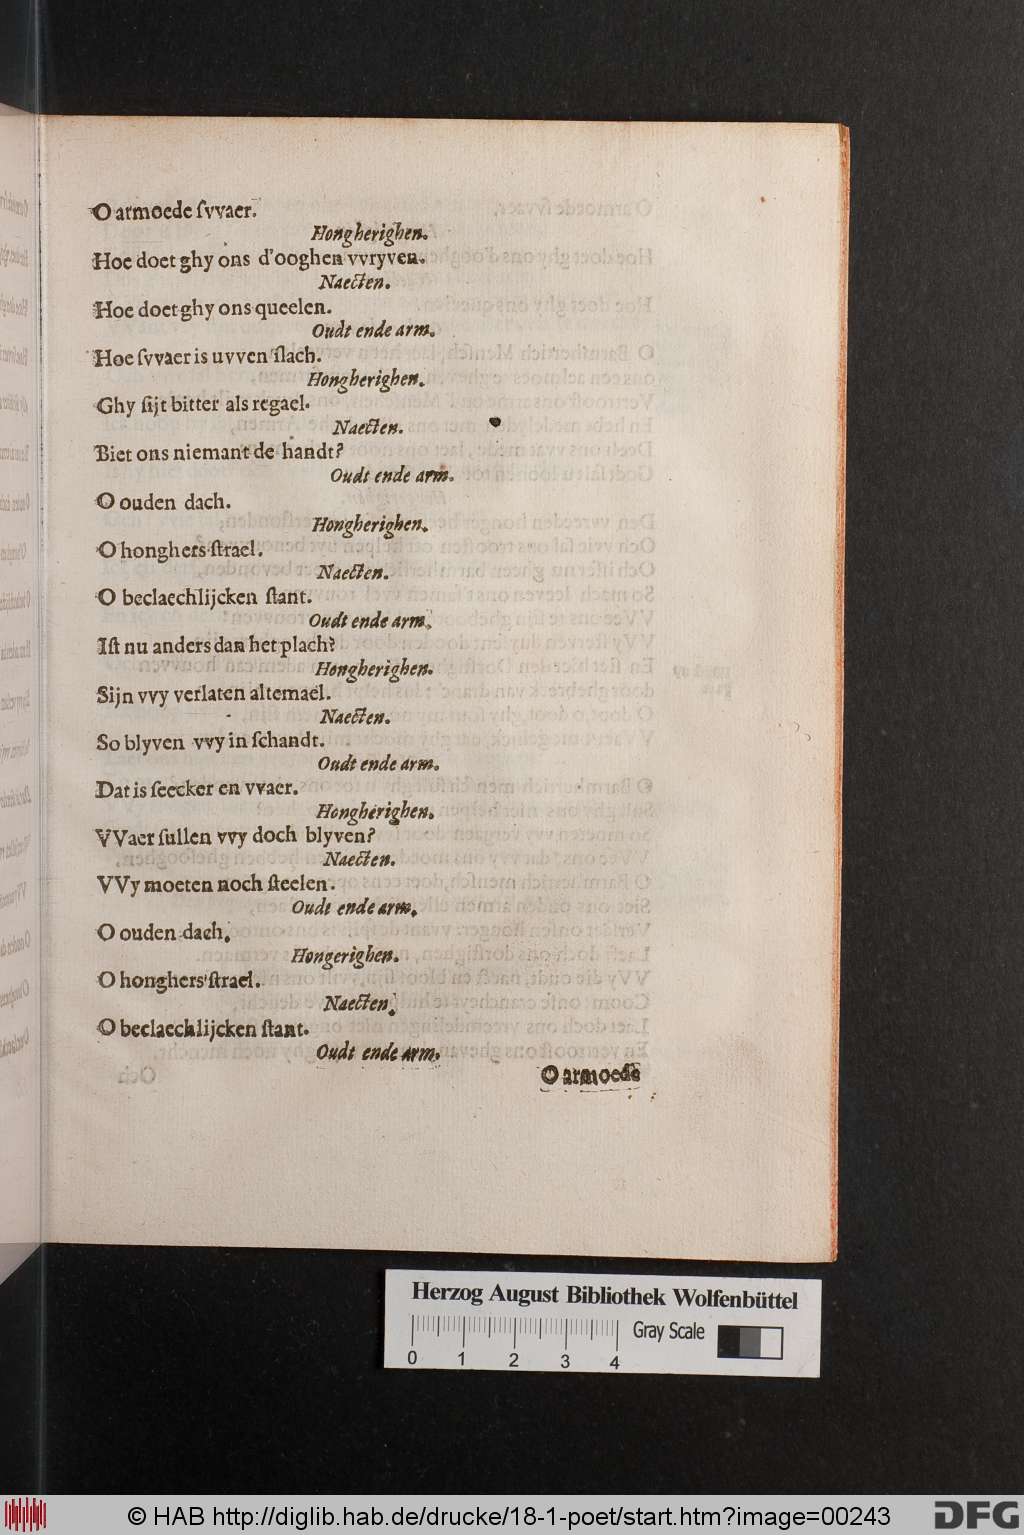 O armoede ſvvaer.
Hongherighen.
Hoe doet ghy ons d'ooghen vvryven.
Naecten.
Hoe doet ghy ons queelen.
Oudt ende arm.
Hoe ſvvaer is uvven ſlach.
Hongherighen.
Ghy ſijt bitter als regael.
Naecten.
Biet ons niemant de handt?
Oudt ende arm.
O ouden dach.
Hongherighen.
O honghers ſtrael.
Naecten.
O beclaechlijcken ſtant.
Oudt ende arm.
Iſt nu anders dan het plach?
Hongherighen.
Sijn vvy verlaten altemael.
Naecten.
So blyven vvy in ſchandt.
Oudt ende arm.
Dat is ſeecker en vvaer.
Hongherighen.
VVaer ſullen vvy doch blyven?
Naecten.
VVy moeten noch ſteelen.
Oudt ende arm.
O ouden dach.
Hongerighen.
O honghers ſtrael.
Naecten.
O beclaechlijcken ſtant.
Oudt ende arm.
O armoede
Herzog August Bibliothek Wolfenbüttel
Gray Scale
0 1 2 3 4
© HAB http://diglib.hab.de/drucke/18-1-poet/start.htm?image=00243
DFG